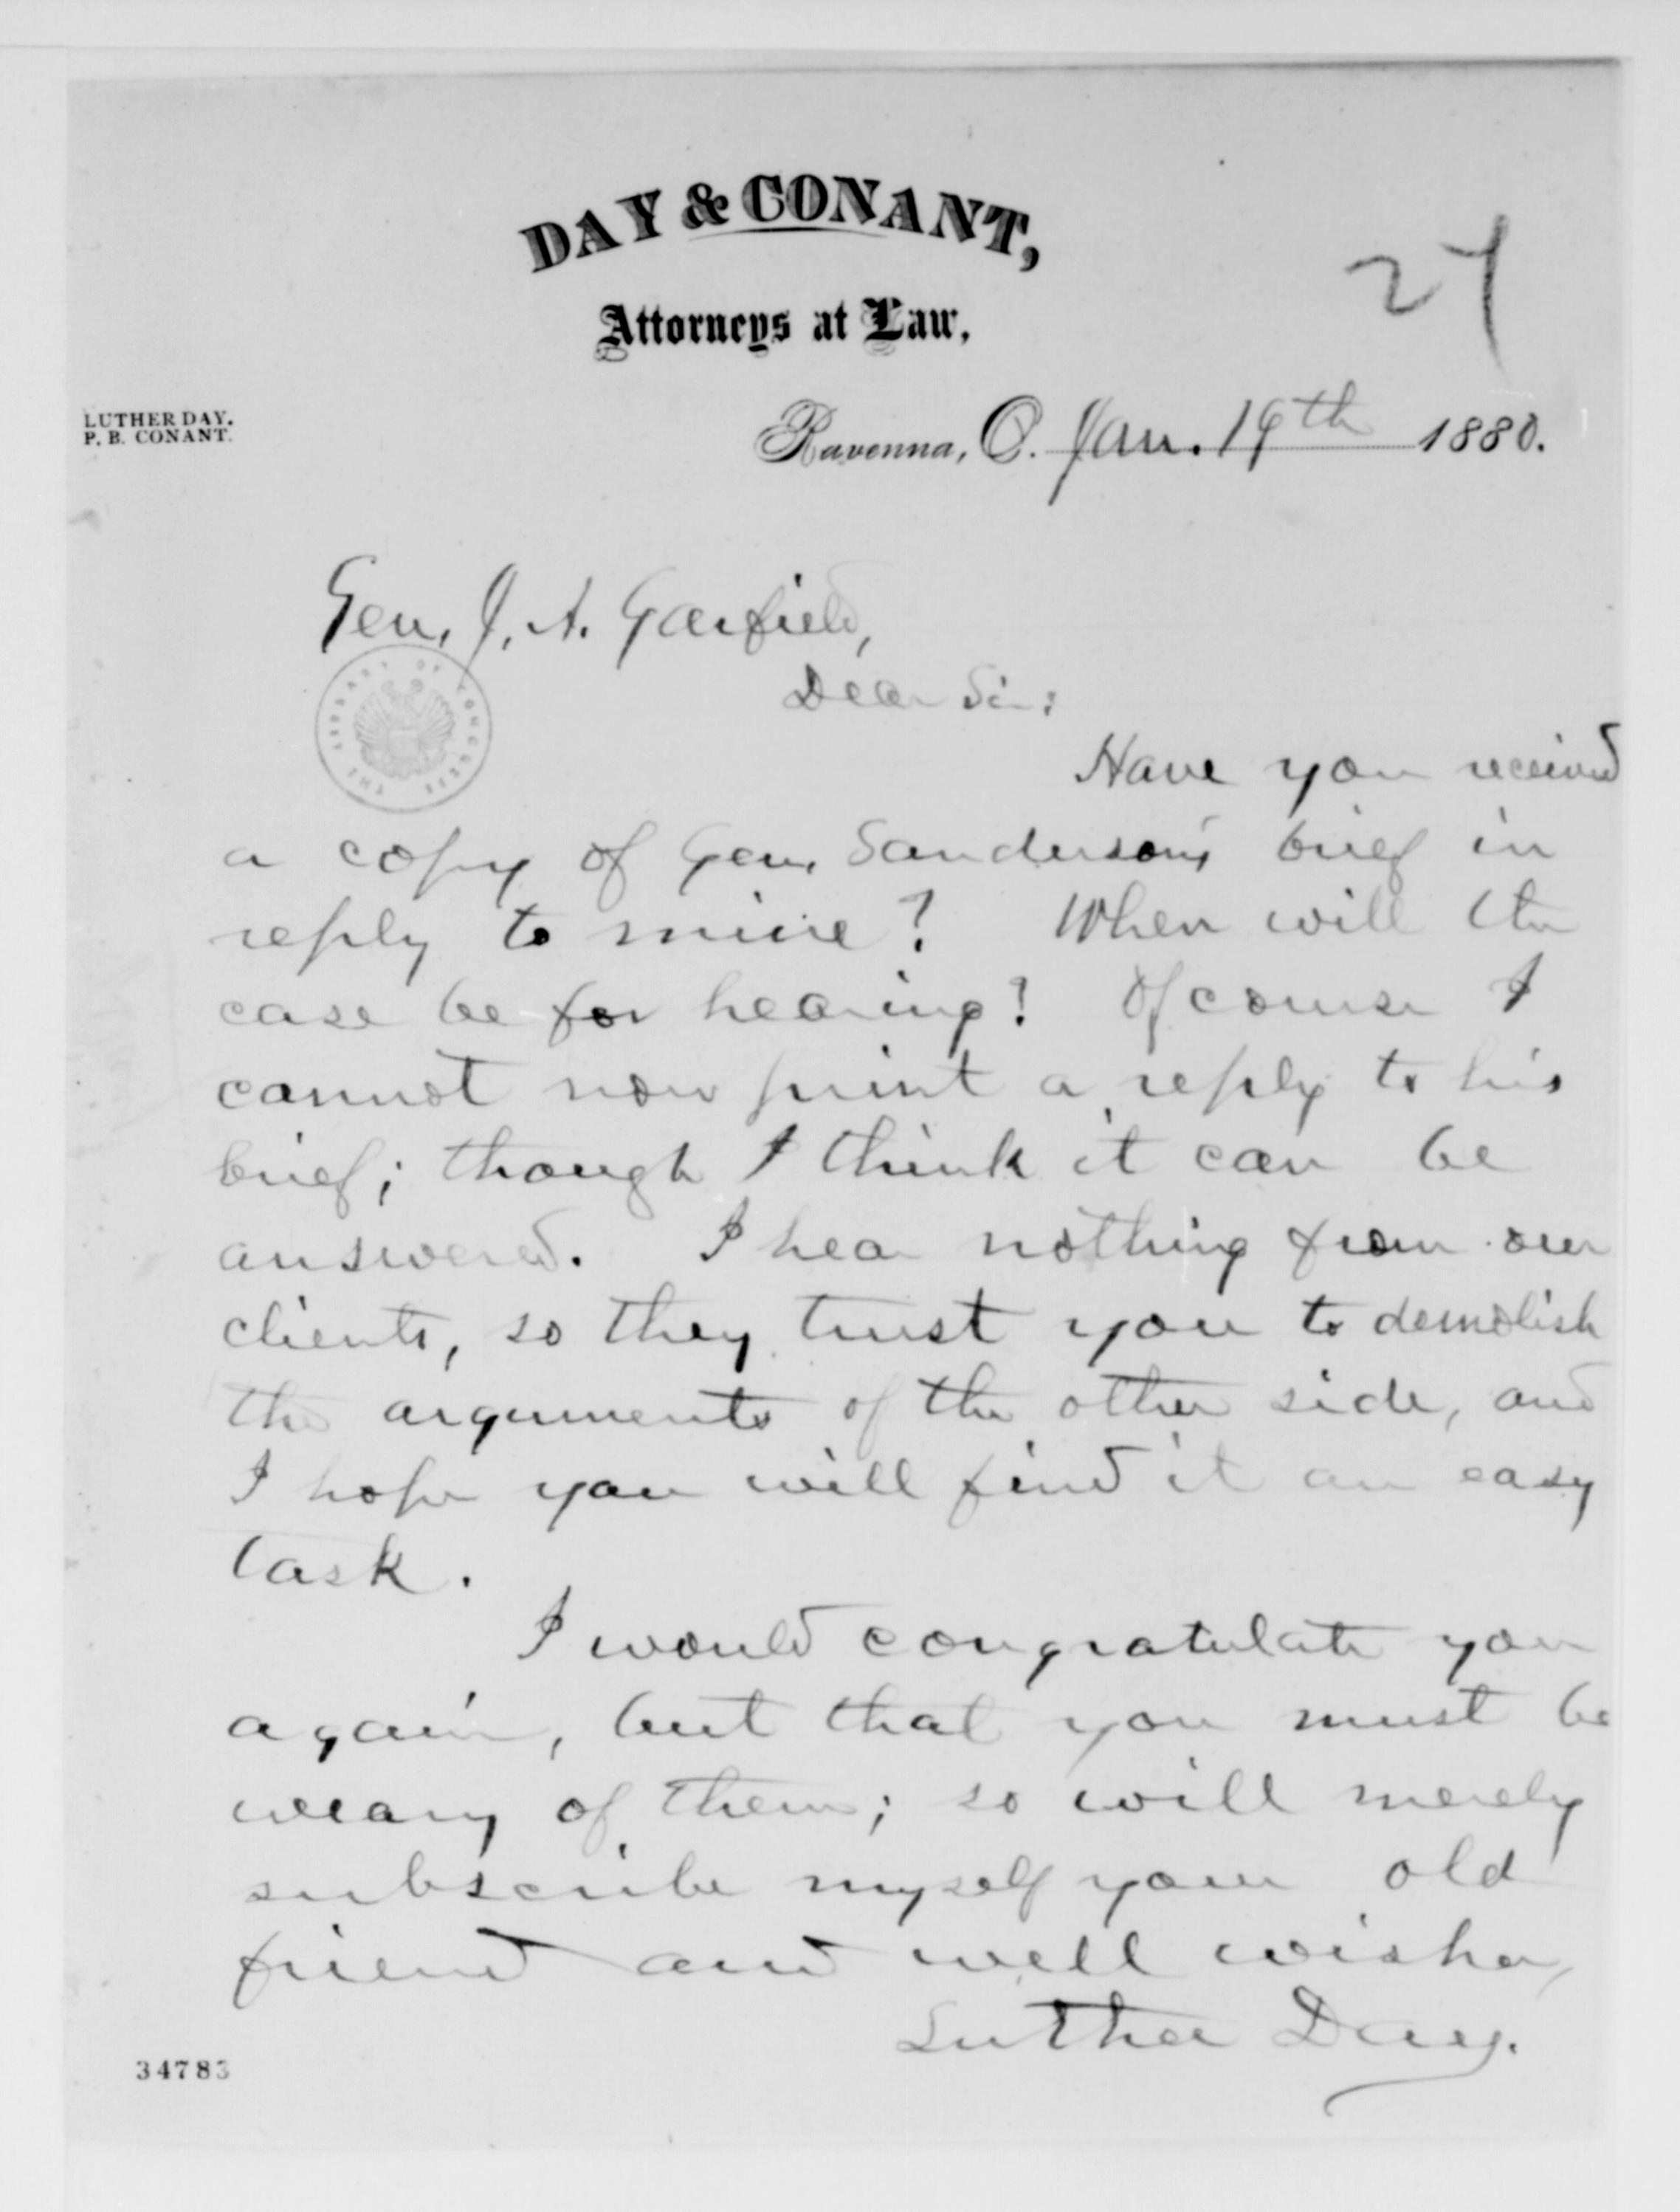 DAY & CONANT,
Attorneys at Law,
27
LUTHER DAY.
P. B. CONANT.
Ravenna, O. Jan. 19th 1880.
Gen. J. A. Garfield,
THE LIBRARY OF CONGRESS
Dear Sir:
Have you received
a copy of Gen. Sanderson's brief in
reply to mine? When will the
case be for hearing? Of course I
cannot now print a reply to his
brief; though I think it can be
answered. I hear nothing from our
clients, so they trust you to demolish
the arguments of the other side, and
I hope you will find it an easy
task.
I would congratulate you
again, but that you must be
weary of them; so will merely
subscribe myself your old
friend and well wisher,
Luther Day.
34783